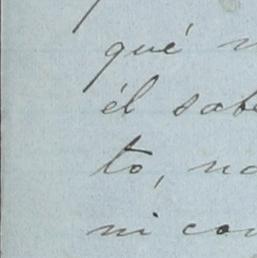 qué
él sab
to, no
ni con